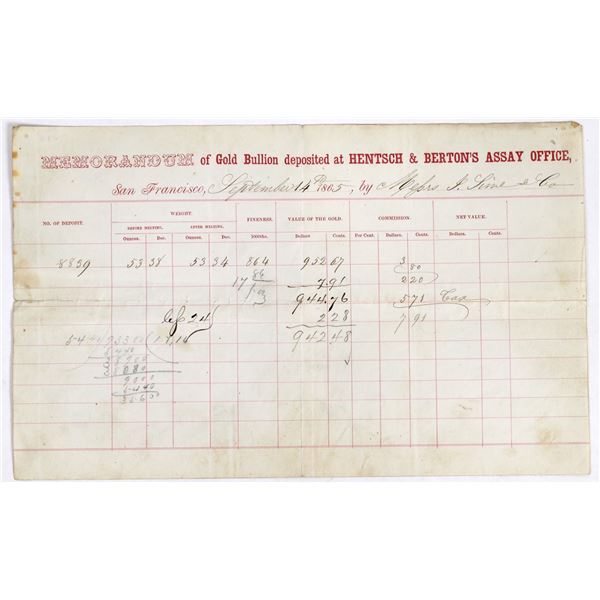 MEMORANDUM of Gold Bullion deposited at HENTSCH & BERTON'S ASSAY OFFICE,
San Francisco, September 14th 1865, by Messrs J. Sime & Co
NO. OF DEPOSIT. WEIGHT. FINENESS. VALUE OF THE GOLD. COMMISSION. NET VALUE.
BEFORE MELTING. AFTER MELTING.
Ounces. Dec. Ounces. Dec. 1000ths. Dollars Cents. Per Cent. Dollars. Cents. Dollars. Cents.
8839 53 38 53 34 864 952 67 3
80
17 86 7.91 2 20
944.76 5 71 Tax
24 2 28 7 91
942 48